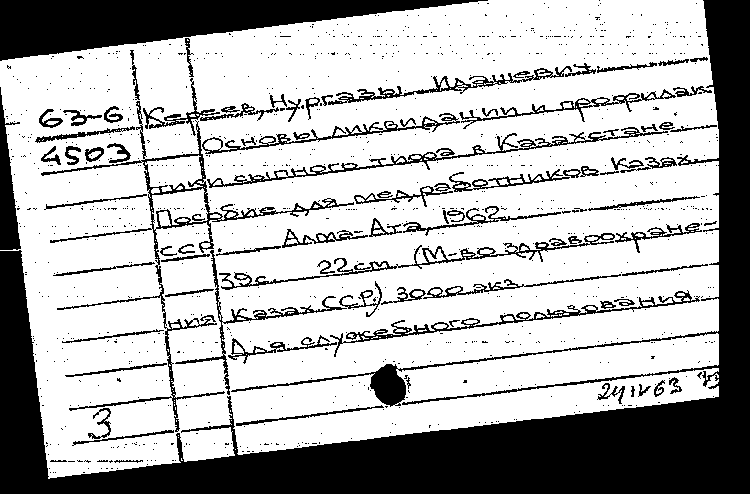 63-6 Кереев, Нургазы Идашевич.
4503 Основы ликвидации и профилак-
тики сыпного тифа в Казахстане.
Пособие для мед. работников Казах.
ССР. Алма-Ата, 1962.
39с. 22см. (М-во здравоохране-
ния Казах.ССР.) 3000 экз.
Для служебного пользования.
3